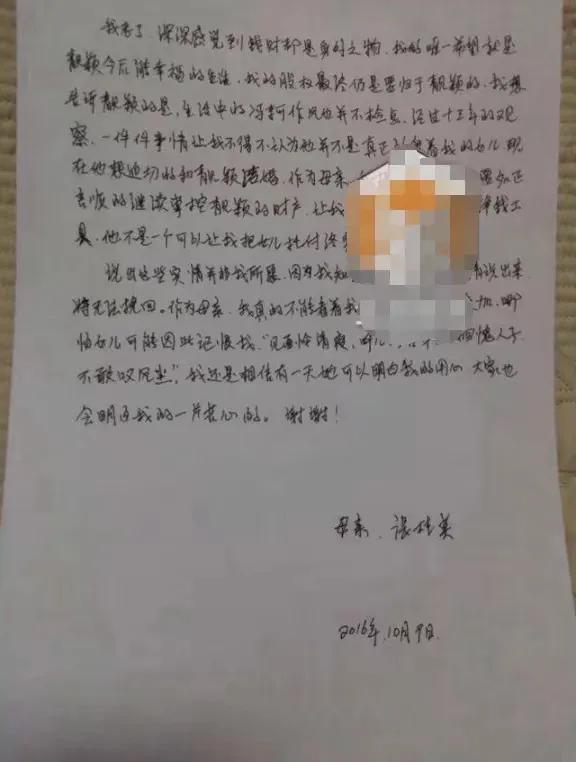 我老了,深深感觉到钱财都是身外之物,我的唯一希望就是
靓颖今后能幸福的生活,我的股权最终仍是要归于靓颖的,我想
告诉靓颖的是,生活中的冯轲作风也并不检点,经过十三年的观
察,一件件事情让我不得不认为他并不是真正的爱着我的女儿,现
在他想迫切的和靓颖结婚,作为母亲,
言顺的继续掌控靓颖的财产,让我
具,他不是一个可以让我把女儿托付终
说出这些实情并非我所愿,因为我知 说出来
将无法挽回。作为母亲,我真的不能看着我 哪
怕女儿可能因此记恨我,“见面怜清瘦,呼儿 愧人子,
不敢叹风尘”,我还是相信有一天她可以明白我的用心,大家也
会明白我的一片苦心的。谢谢!
母亲:张桂英
2016年,10月9日